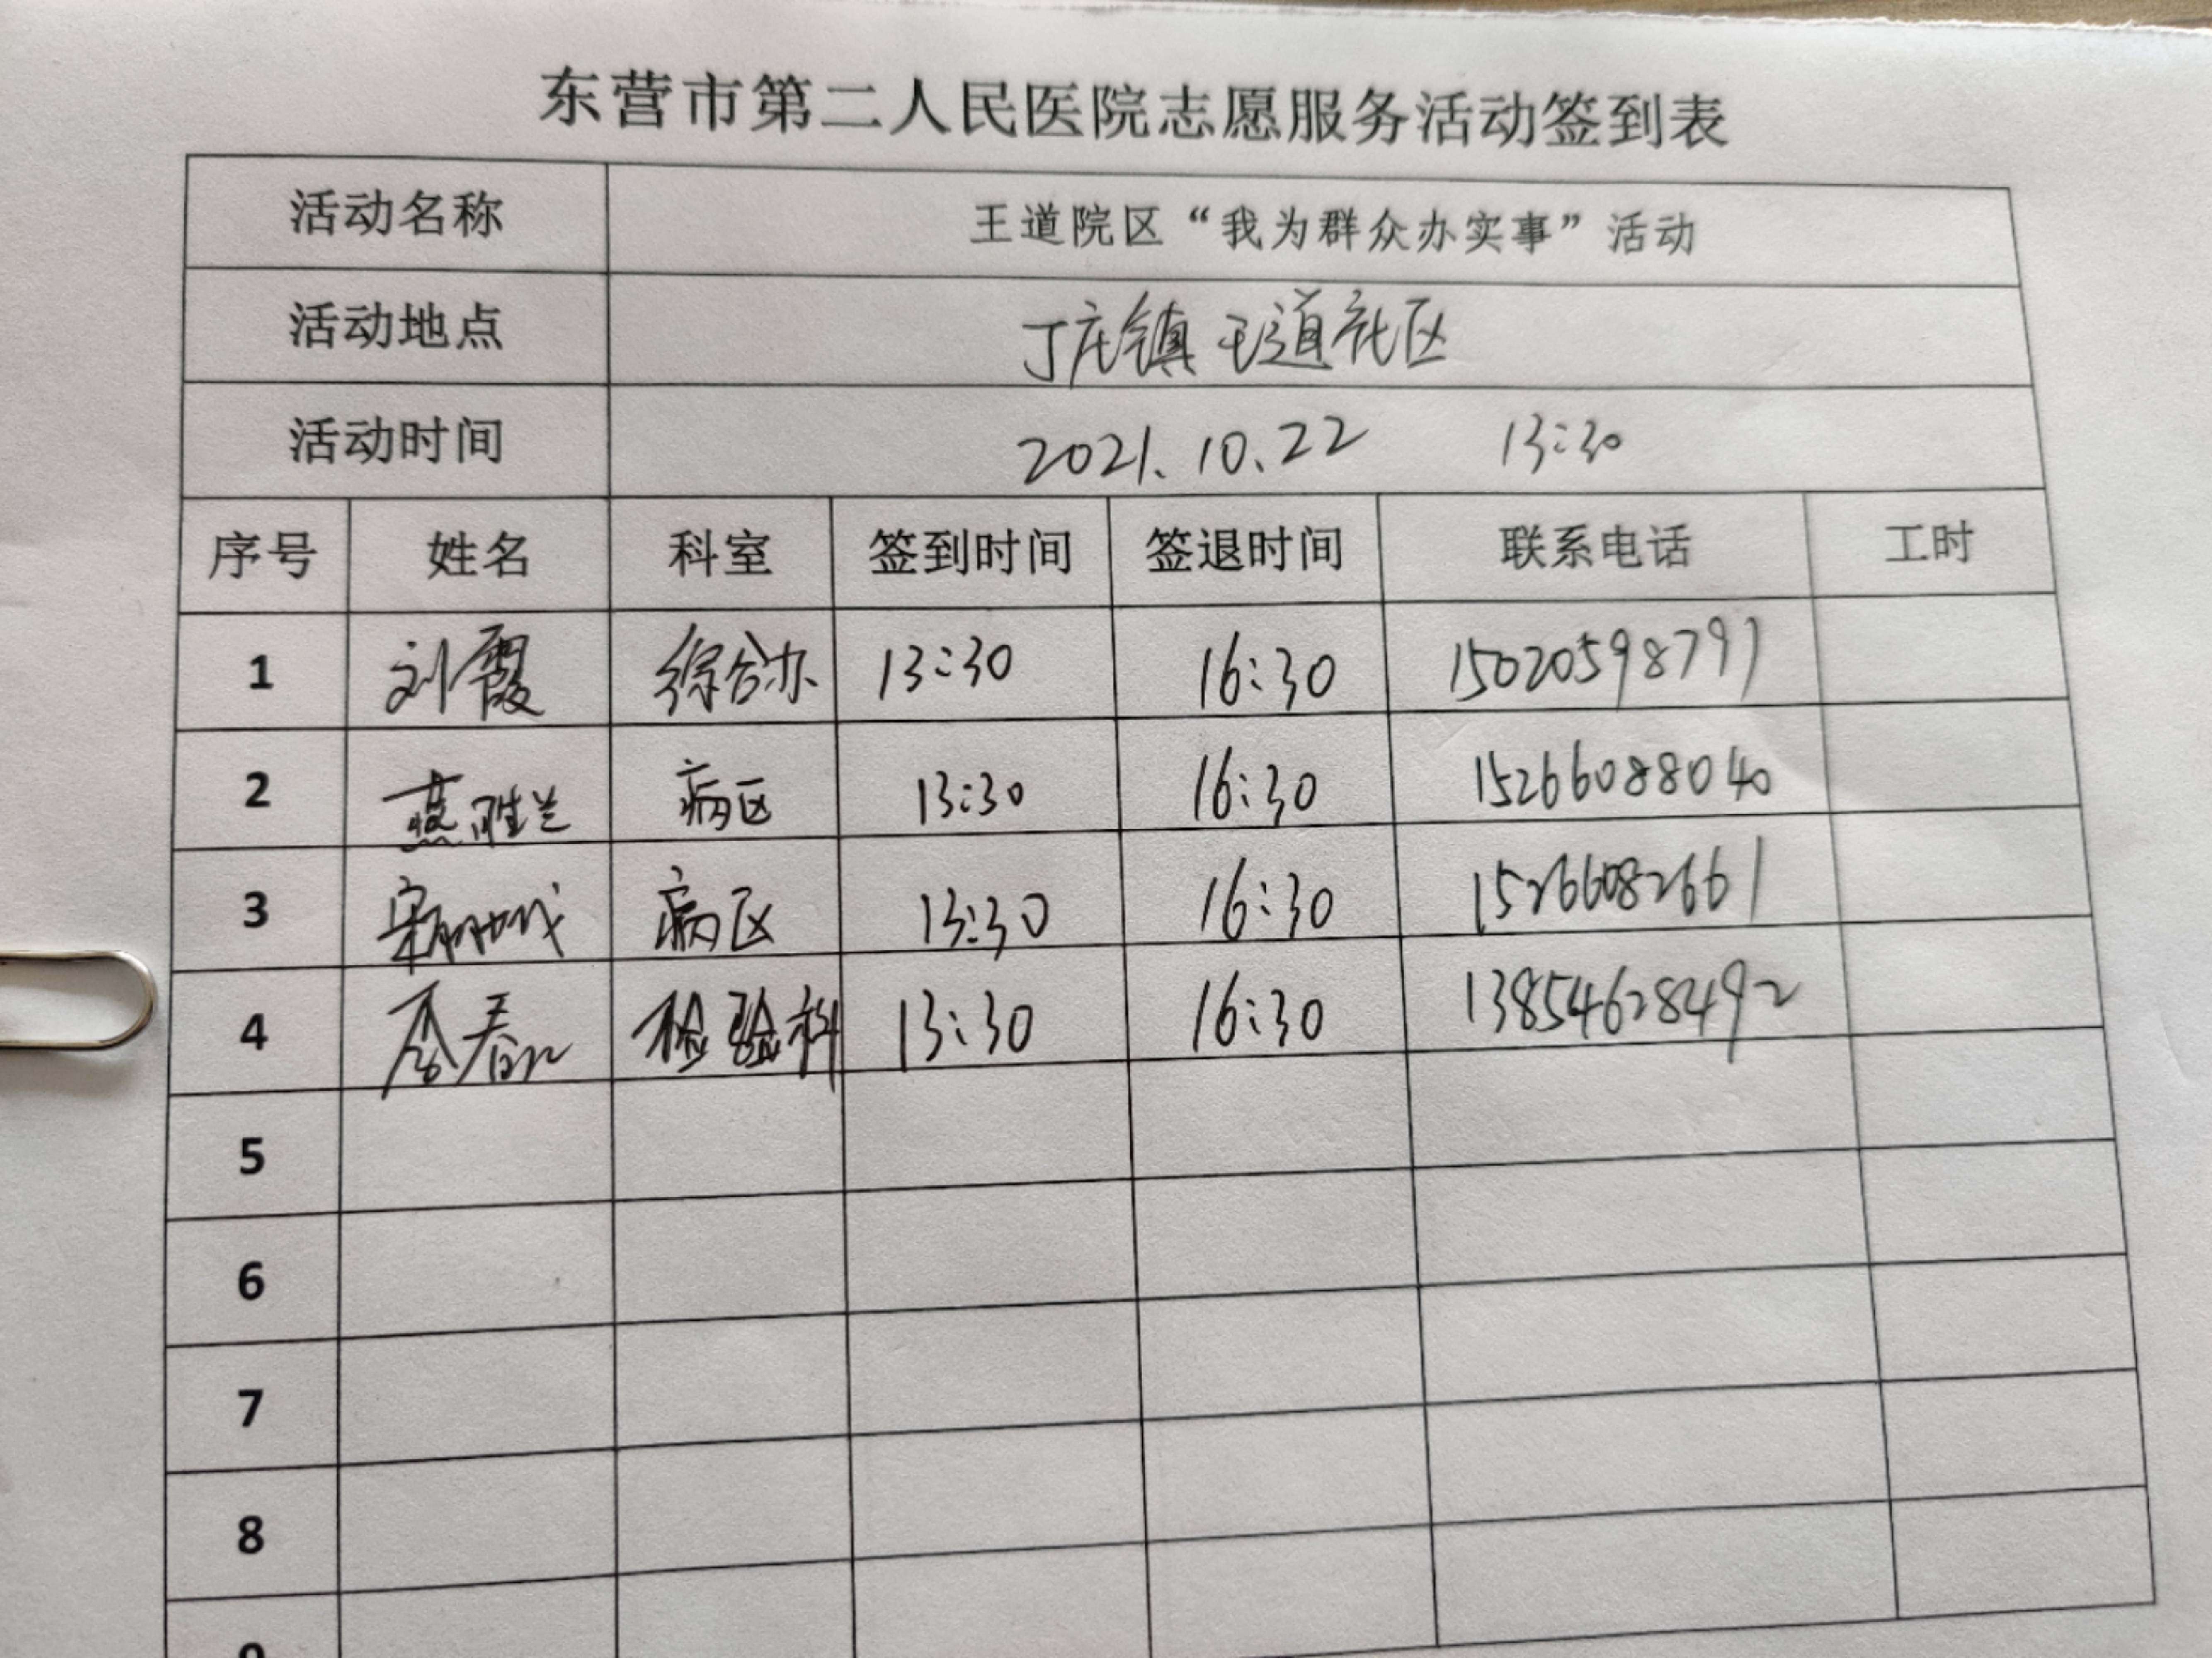 东营市第二人民医院志愿服务活动签到表
活动名称 王道院区“我为群众办实事”活动
活动地点 丁庄镇王道社区
活动时间 2021.10.22 13:30
序号 姓名 科室 签到时间 签退时间 联系电话 工时
1 刘霞 综合办 13:30 16:30 15020598791
2 燕胜兰 病区 13:30 16:30 15266088040
3 病区 13:30 16:30 15266082661
4 检验科 13:30 16:30 13854628492
5
6
7
8
9